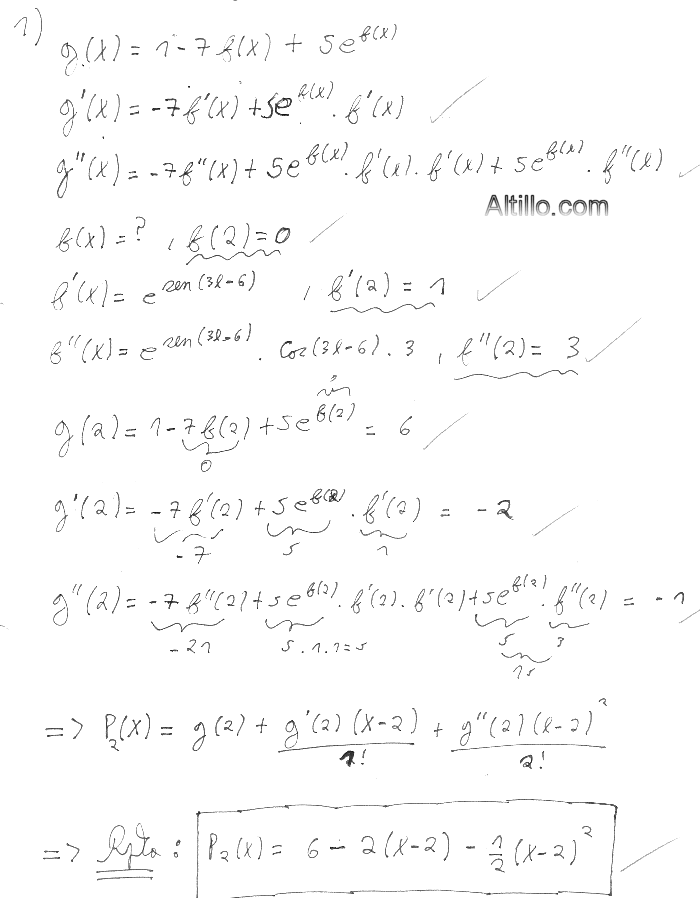 1) g(x) = 1 - 7f(x) + 5e^f(x)
g'(x) = -7f'(x) + 5e^f(x) . f'(x)
g''(x) = -7f''(x) + 5e^f(x) . f'(x) . f'(x) + 5e^f(x) . f''(x)
Altillo.com
f(x) = ? , f(2) = 0
f'(x) = e^sen(3x-6) , f'(2) = 1
f''(x) = e^sen(3x-6) . Cos(3x-6) . 3 , f''(2) = 3
g(2) = 1 - 7f(2) + 5e^f(2) = 6
0
g'(2) = -7f'(2) + 5e^f(2) . f'(2) = -2
-7 5 1
g''(2) = -7f''(2) + 5e^f(2) . f'(2) . f'(2) + 5e^f(2) . f''(2) = -1
-21 5.1.1=5 5 3
15
=> P2(x) = g(2) + g'(2)(x-2)/1! + g''(2)(x-2)^2/2!
=> Rpta : P2(x) = 6 - 2(x-2) - 1/2(x-2)^2